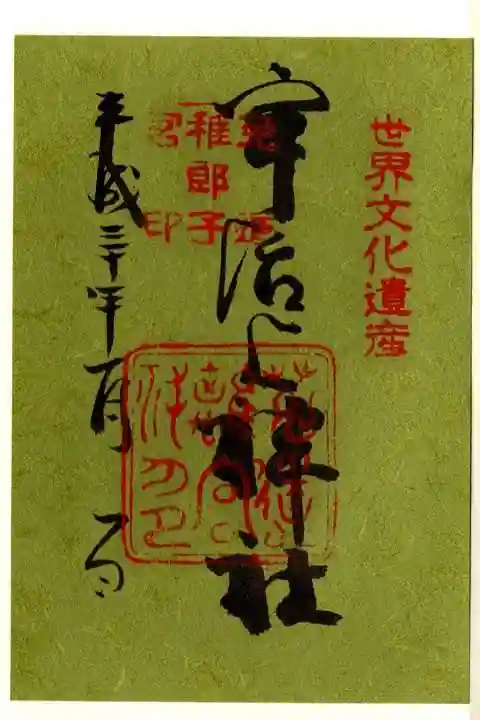 世界文化遺産
宇治上神社
菟道
稚郎子
君印
平成三十年一月一日